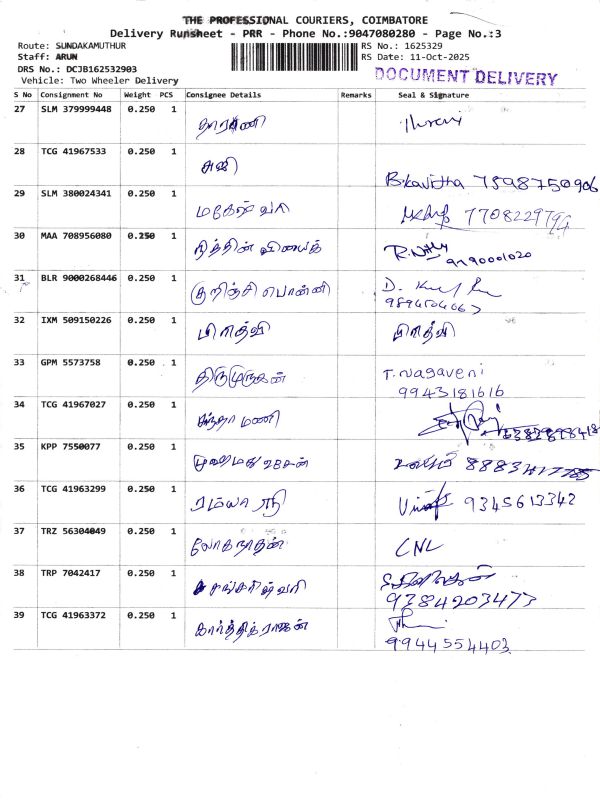 THE PROFESSIONAL COURIERS, COIMBATORE
Delivery Runsheet - PRR - Phone No.:9047080280 - Page No.:3
Route: SUNDAKAMUTHUR RS No.: 1625329
Staff: ARUN RS Date: 11-Oct-2025
DRS No.: DCJB162532903
Vehicle: Two Wheeler Delivery DOCUMENT DELIVERY
S No Consignment No Weight PCS Consignee Details Remarks Seal & Signature
27 SLM 379999448 0.250 1 தாரணி
28 TCG 41967533 0.250 1 அஜி B.kavitha 7598750906
29 SLM 380024341 0.250 1 மகேஷ்வரி 7708229794
30 MAA 708956080 0.250 1 நித்தின் வினையக் 9790001020
31 BLR 9000268446 0.250 1 குறிஞ்சி பொன்னி 9894504067
32 IXM 509150226 0.250 1 பிரித்வி பிரித்வி
33 GPM 5573758 0.250 1 திருமுருகன் T.Nagaveni
9943181616
34 TCG 41967027 0.250 1 சந்தாமணி
35 KPP 7550077 0.250 1 முகைமது உசேன்
36 TCG 41963299 0.250 1 ரம்யா ஸ்ரீ 9345613342
37 TRZ 56304049 0.250 1 லோகநாதன் CNL
38 TRP 7042417 0.250 1 சங்கரிஷ்வரி
9384203473
39 TCG 41963372 0.250 1 கார்த்திக்ராஜன்
9944554403